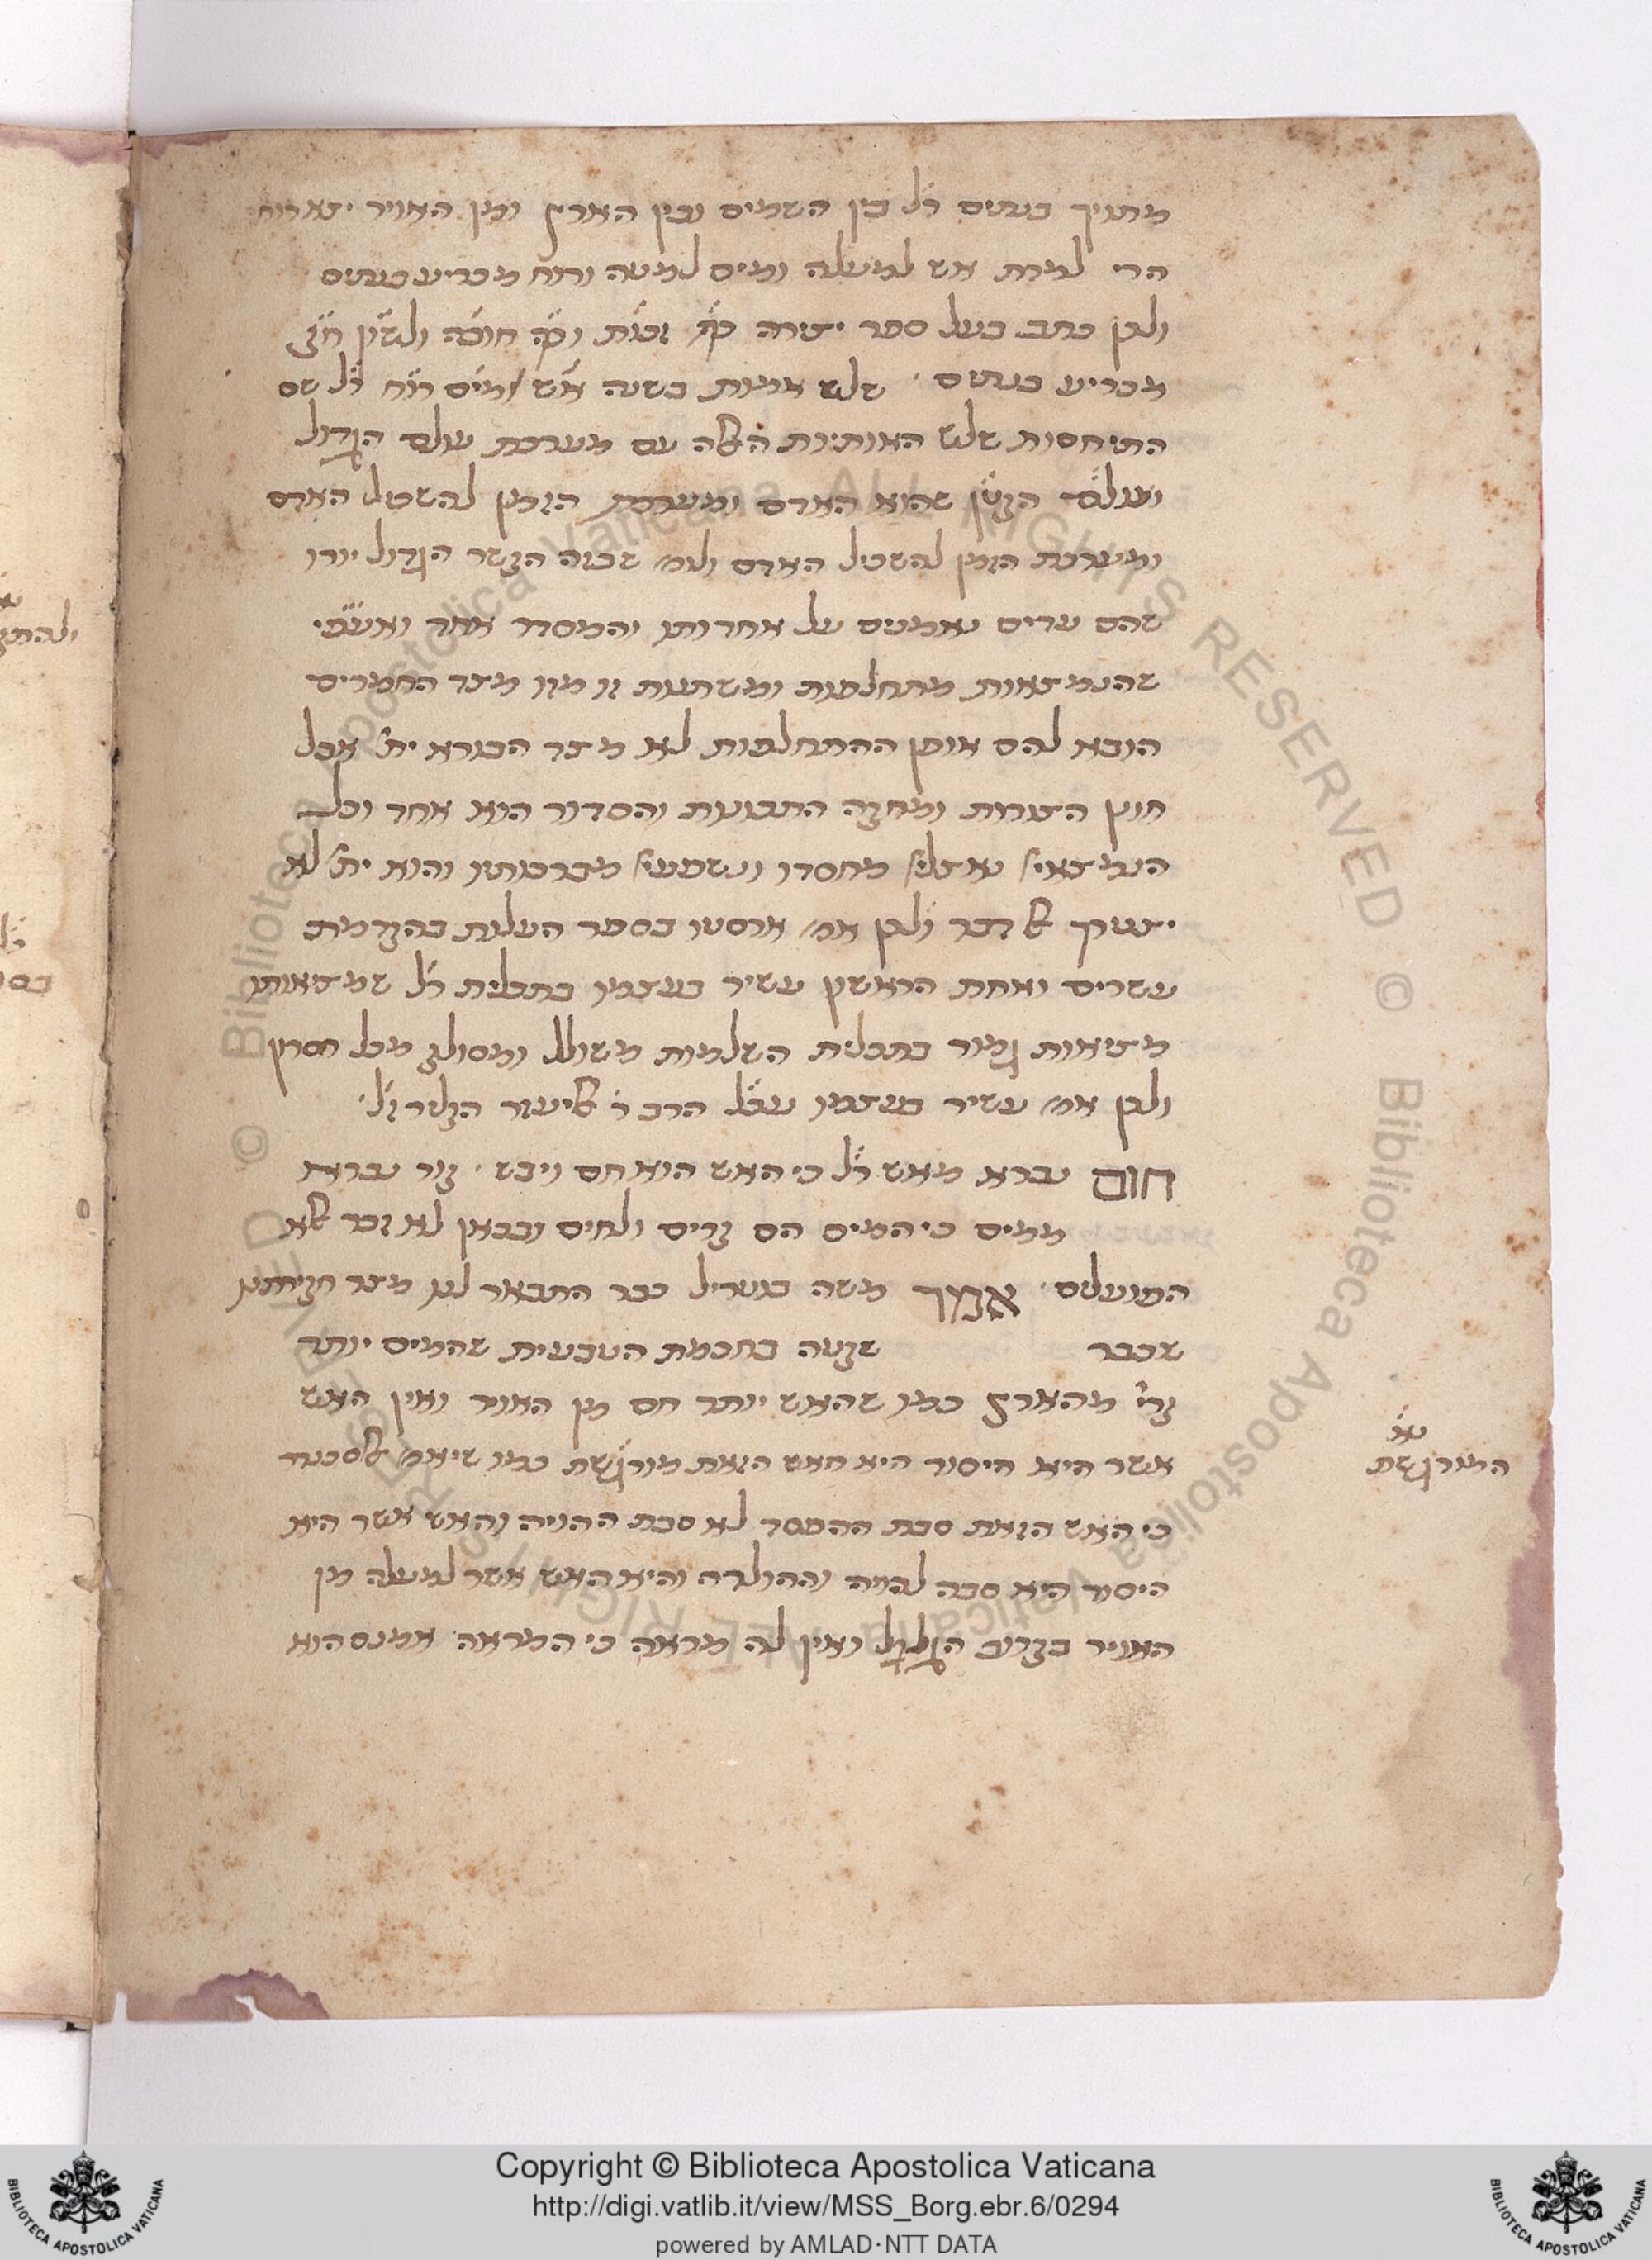 מתווך בנתים ר״ל בין השמים ובין הארץ ומן האויר
הרי למדת אש למעלה ומים למטה ורוח מכריע בנתים
ולכן כתב בעל ספר יצירה כף זכות וכף חובה ולשון חק
מכריע בנתים שלש אמות בשנה אש ומים רוח ר״ל שם
התיחסות שלש האותיות האלה עם מערכת עולם הגדול
ועולם הקטן שהוא האדם ומערכת הזמן להשכיל האדם
ומערכת הזמן להשכיל האדם שבזה הקשר הגדול יורו
שהם עדים נאמנים על אחדותו והמסדר אחד ואעפ״י
שהנמצאות מתחלפות ומשתנות זו מזו מצד החמרים
הובא להם אופן ההתחלפות לא מצד הבורא ית׳ אבל
חוץ הצורות ומחזה התנועות והסדור הוא אחד וכל
הנמצאי׳ נאצלי׳ מחסדו ונשפעי׳ מברכותיו והוא ית׳ לא
יצטרך אל דבר ולכן אמ׳ ארסטו בספר העלות בהקדמת
עשרים ואחת הראשון עשיר בעצמו בתכלית ר״ל שמציאותו
מציאות גמור בתכלית השלמות משולל ומסולק מכל חסרון
ולכן אמ׳ עשיר בעצמו עכ״ל הרב ר׳ אליעזר הקליר ז״ל
חום נברא מאש ר״ל כי האש הוא חם ויבש קור נברא
ממים כי המים הם קרים ולחים ובכאן לא זכר אלא
הפועלים אמר משה בוטריל כבר התבאר לנו מצד חקירתנו
שכבר בחכמת הטבעית שהמים יותר
קרי׳ מהארץ כמו שהאש יותר חם מן האויר ואין האש
אשר היא היסוד היא האש הזאת מורגשת כמו שיאמ׳ אלסכנדר
נ״א
המורגשת
כי האש הזאת סבת ההפסד לא סבת ההויה והאש אשר היא
היסוד היא סבה להויה וההולדה והיא האש אשר למעלה מן
האויר בקרוב הגלגל ואין לה מראה כי המראה אמנם הוא
Copyright © Biblioteca Apostolica Vaticana
http://digi.vatlib.it/view/MSS_Borg.ebr.6/0294
powered by AMLAD·NTT DATA